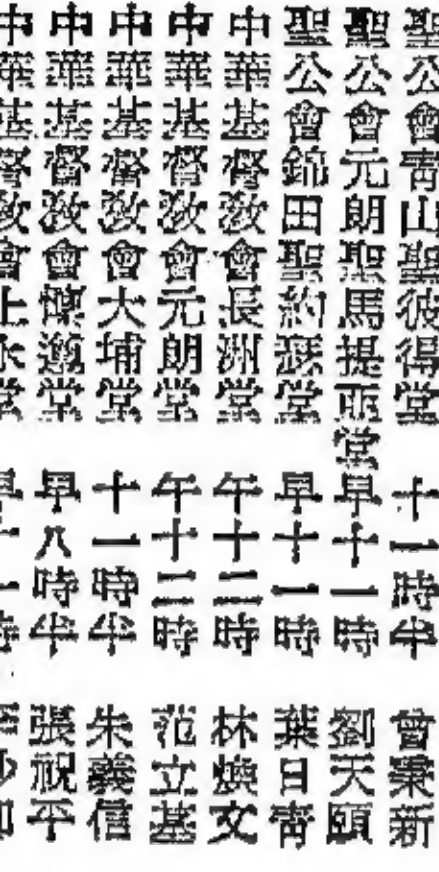 聖公會青山聖彼得堂 十一時半 曾新
聖公會元朗聖馬提亞堂 早十一時 劉天頤
聖公會錦田聖約瑟堂 早十一時 葉日青
中華基督教會長洲堂 午十二時 林煥文
中華基督教會元朗堂 午十二時 范立基
中華基督教會大埔堂 十一時半 朱義信
中華基督教會懷堂 早八時半 張祝平
中華基督教會上水堂 早十一時